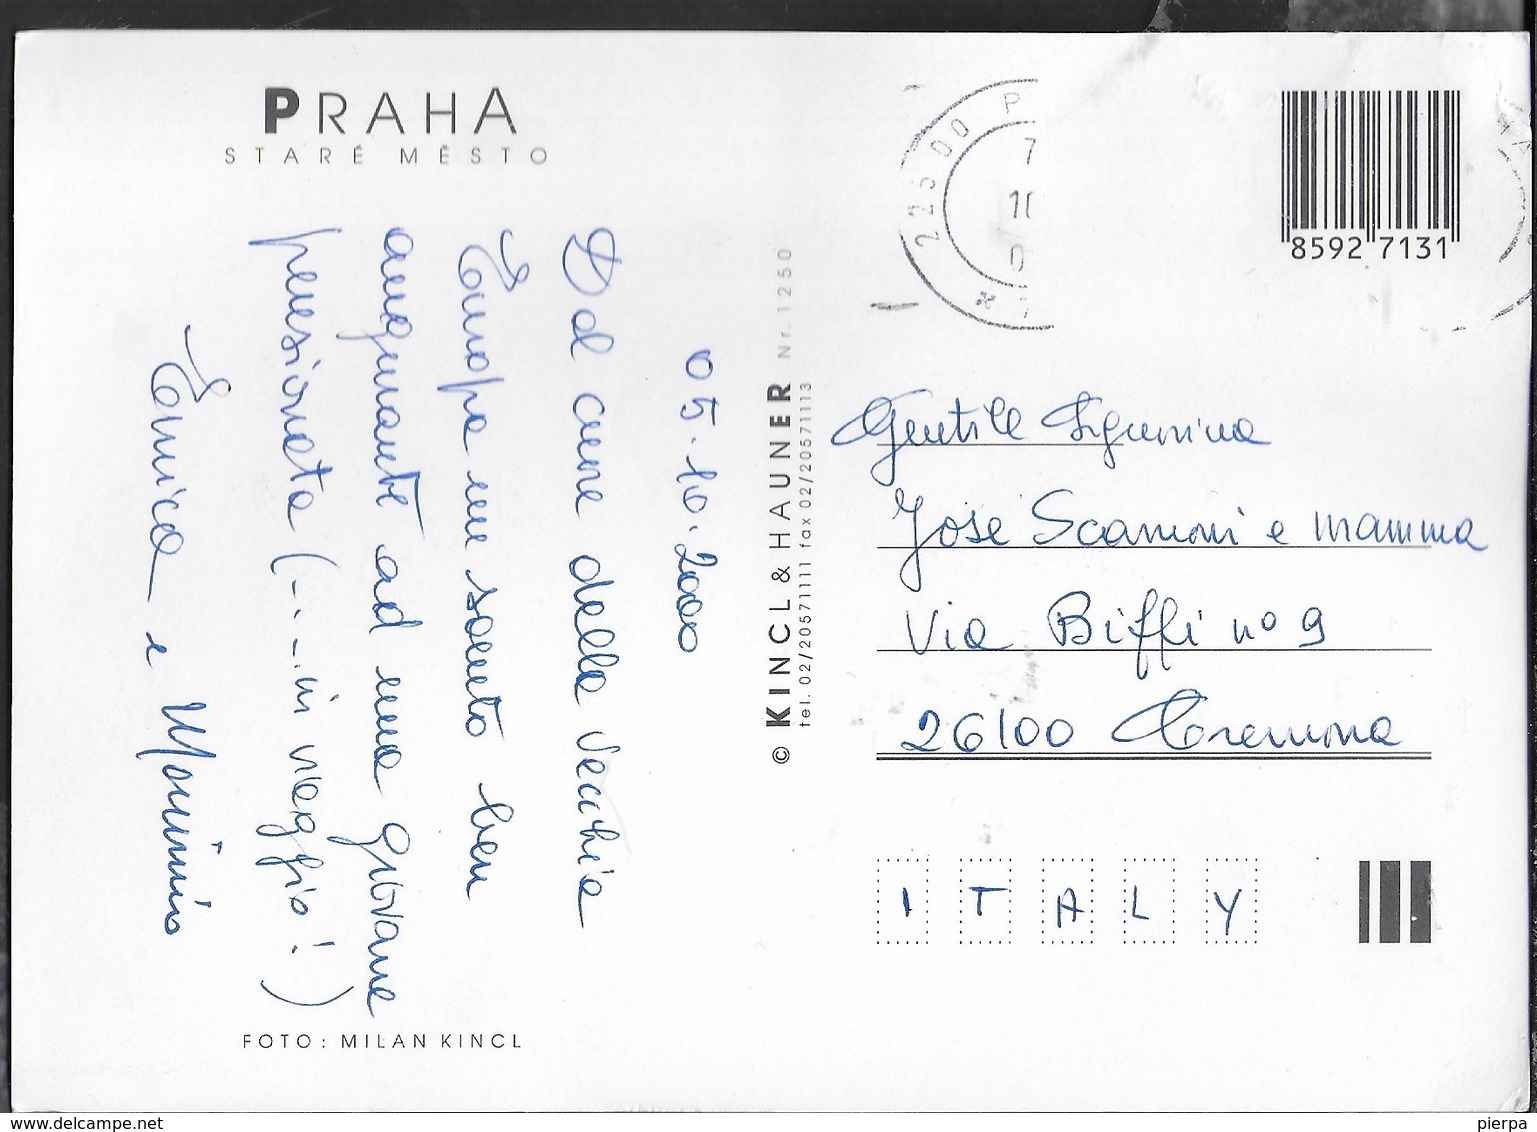 PRAHA
STARÉ MĚSTO
05.10.2000
Dal cuore della vecchia
Europa un saluto ben
augurante ad una giovane
pensionata (... in viaggio!)
Enrica e Massimo
FOTO: MILAN KINCL
© KINCL & HAUNER Nr. 1250
tel. 02/20571111 fax 02/20571113
225 00 P
7
10
0
8592 7131
Gentile Signorina
Jose Scamoni e mamma
Via Biffi n° 9
26100 Cremona
ITALY
www.delcampe.net
pierpa